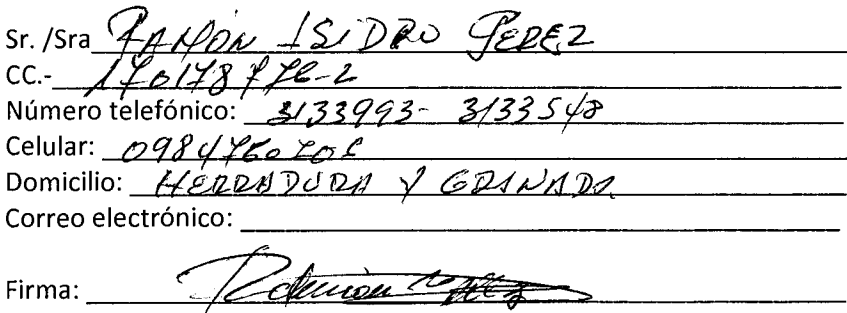 Sr. /Sra RAMÓN ISIDRO PEREZ
CC.-
Número telefónico: 3133993- 3133548
Celular:
Domicilio: HERRADURA Y GRANADA
Correo electrónico:
Firma: